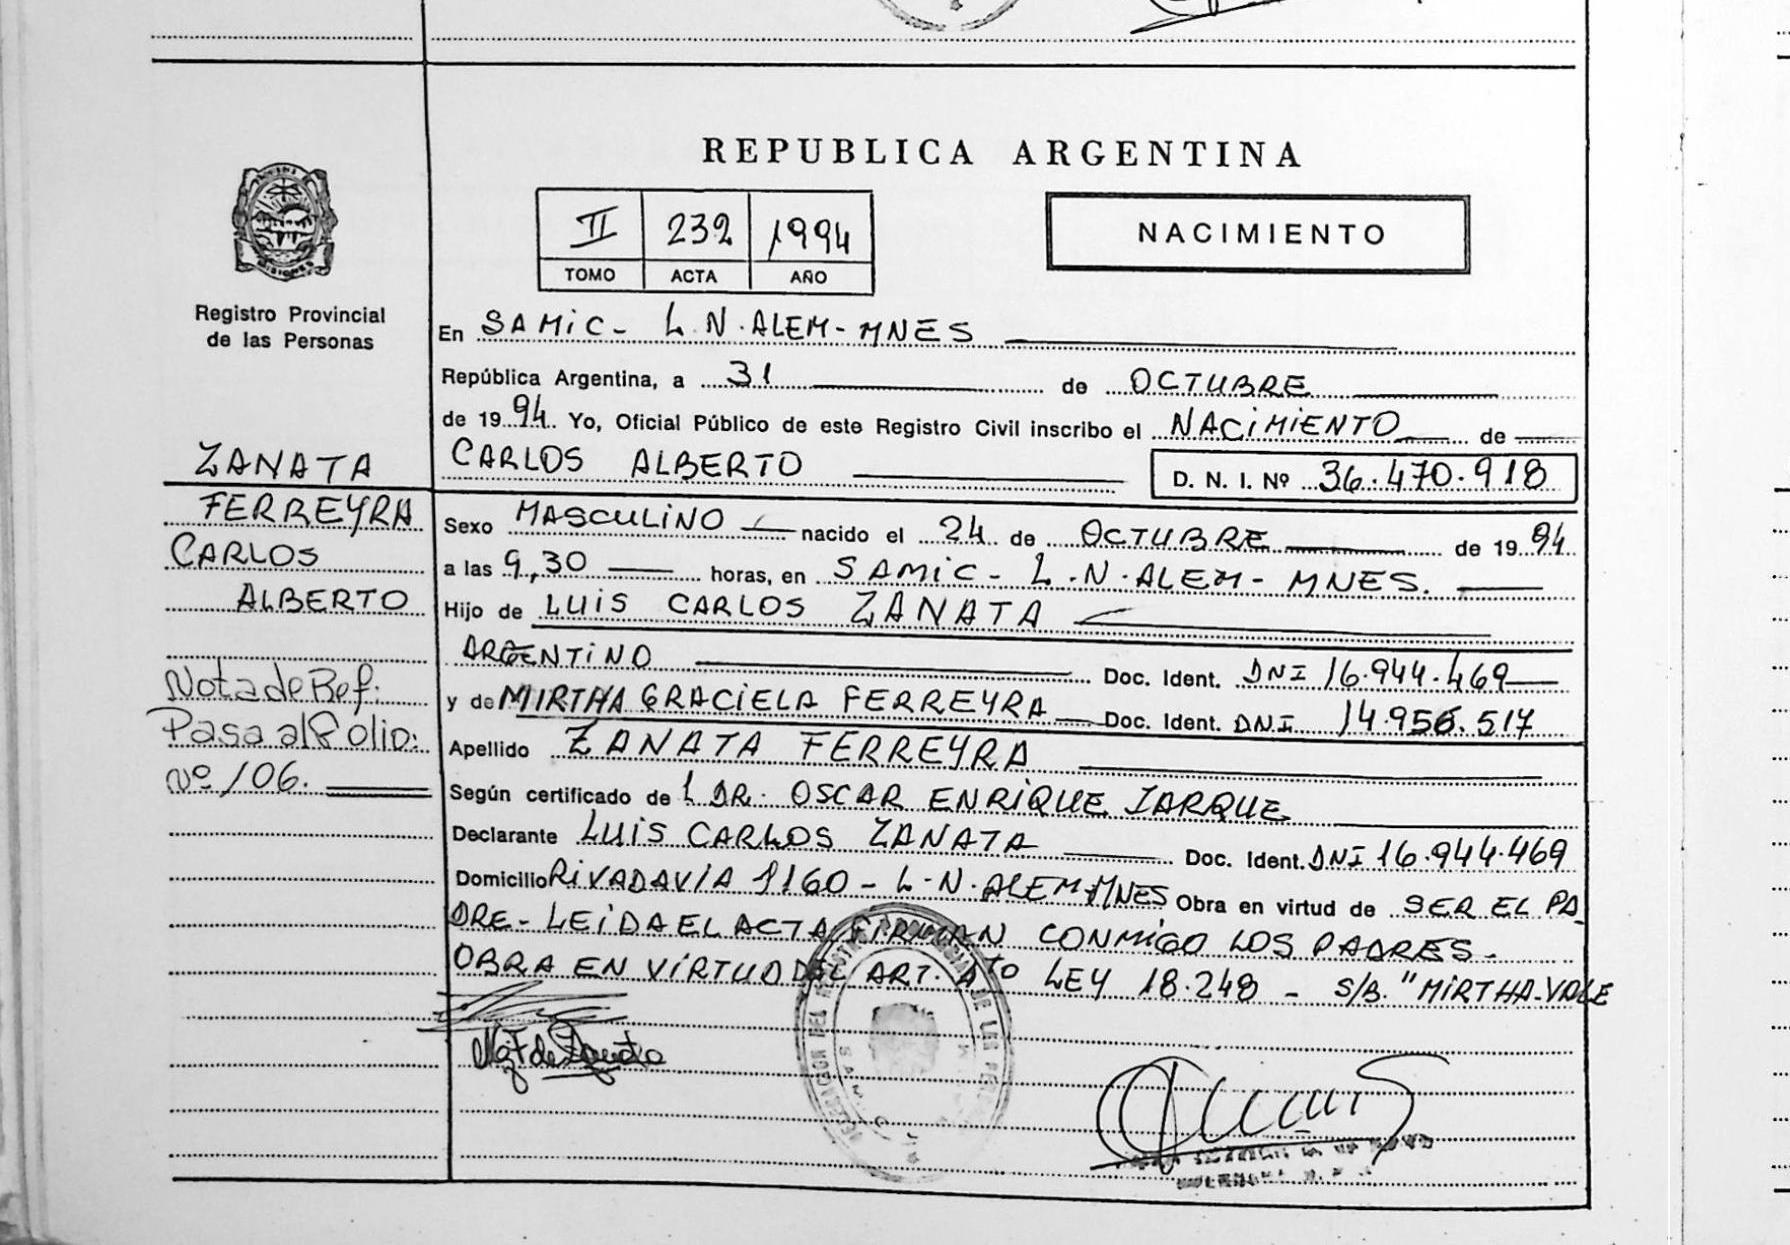 REPUBLICA ARGENTINA
II 232 1994
TOMO ACTA AÑO
NACIMIENTO
MISIONES
Registro Provincial
de las Personas
En SAMIC - L.N.ALEM - MNES
República Argentina, a 31 de OCTUBRE
de 1994. Yo, Oficial Público de este Registro Civil inscribo el NACIMIENTO de
CARLOS ALBERTO
D. N. I. Nº 36.470.918
ZANATA
FERREYRA
CARLOS
ALBERTO
Nota de Ref:
Pasa al folio:
Nº 106.
Sexo MASCULINO nacido el 24 de OCTUBRE de 1994
a las 9,30 horas, en SAMIC - L.N.ALEM - MNES.
Hijo de LUIS CARLOS ZANATA
ARGENTINO Doc. Ident. DNI 16.944.469
y de MIRTHA GRACIELA FERREYRA Doc. Ident. DNI 14.956.517
Apellido ZANATA FERREYRA
Según certificado de l DR. OSCAR ENRIQUE JARQUE
Declarante LUIS CARLOS ZANATA Doc. Ident. DNI 16.944.469
Domicilio RIVADAVIA 1160 - L.N.ALEM-MNES Obra en virtud de SER EL PA-
DRE - LEIDA EL ACTA FIRMAN CONMIGO LOS PADRES -
OBRA EN VIRTUD DEL ART. 4to LEY 18.248 - S/B. "MIRTHA-VALE